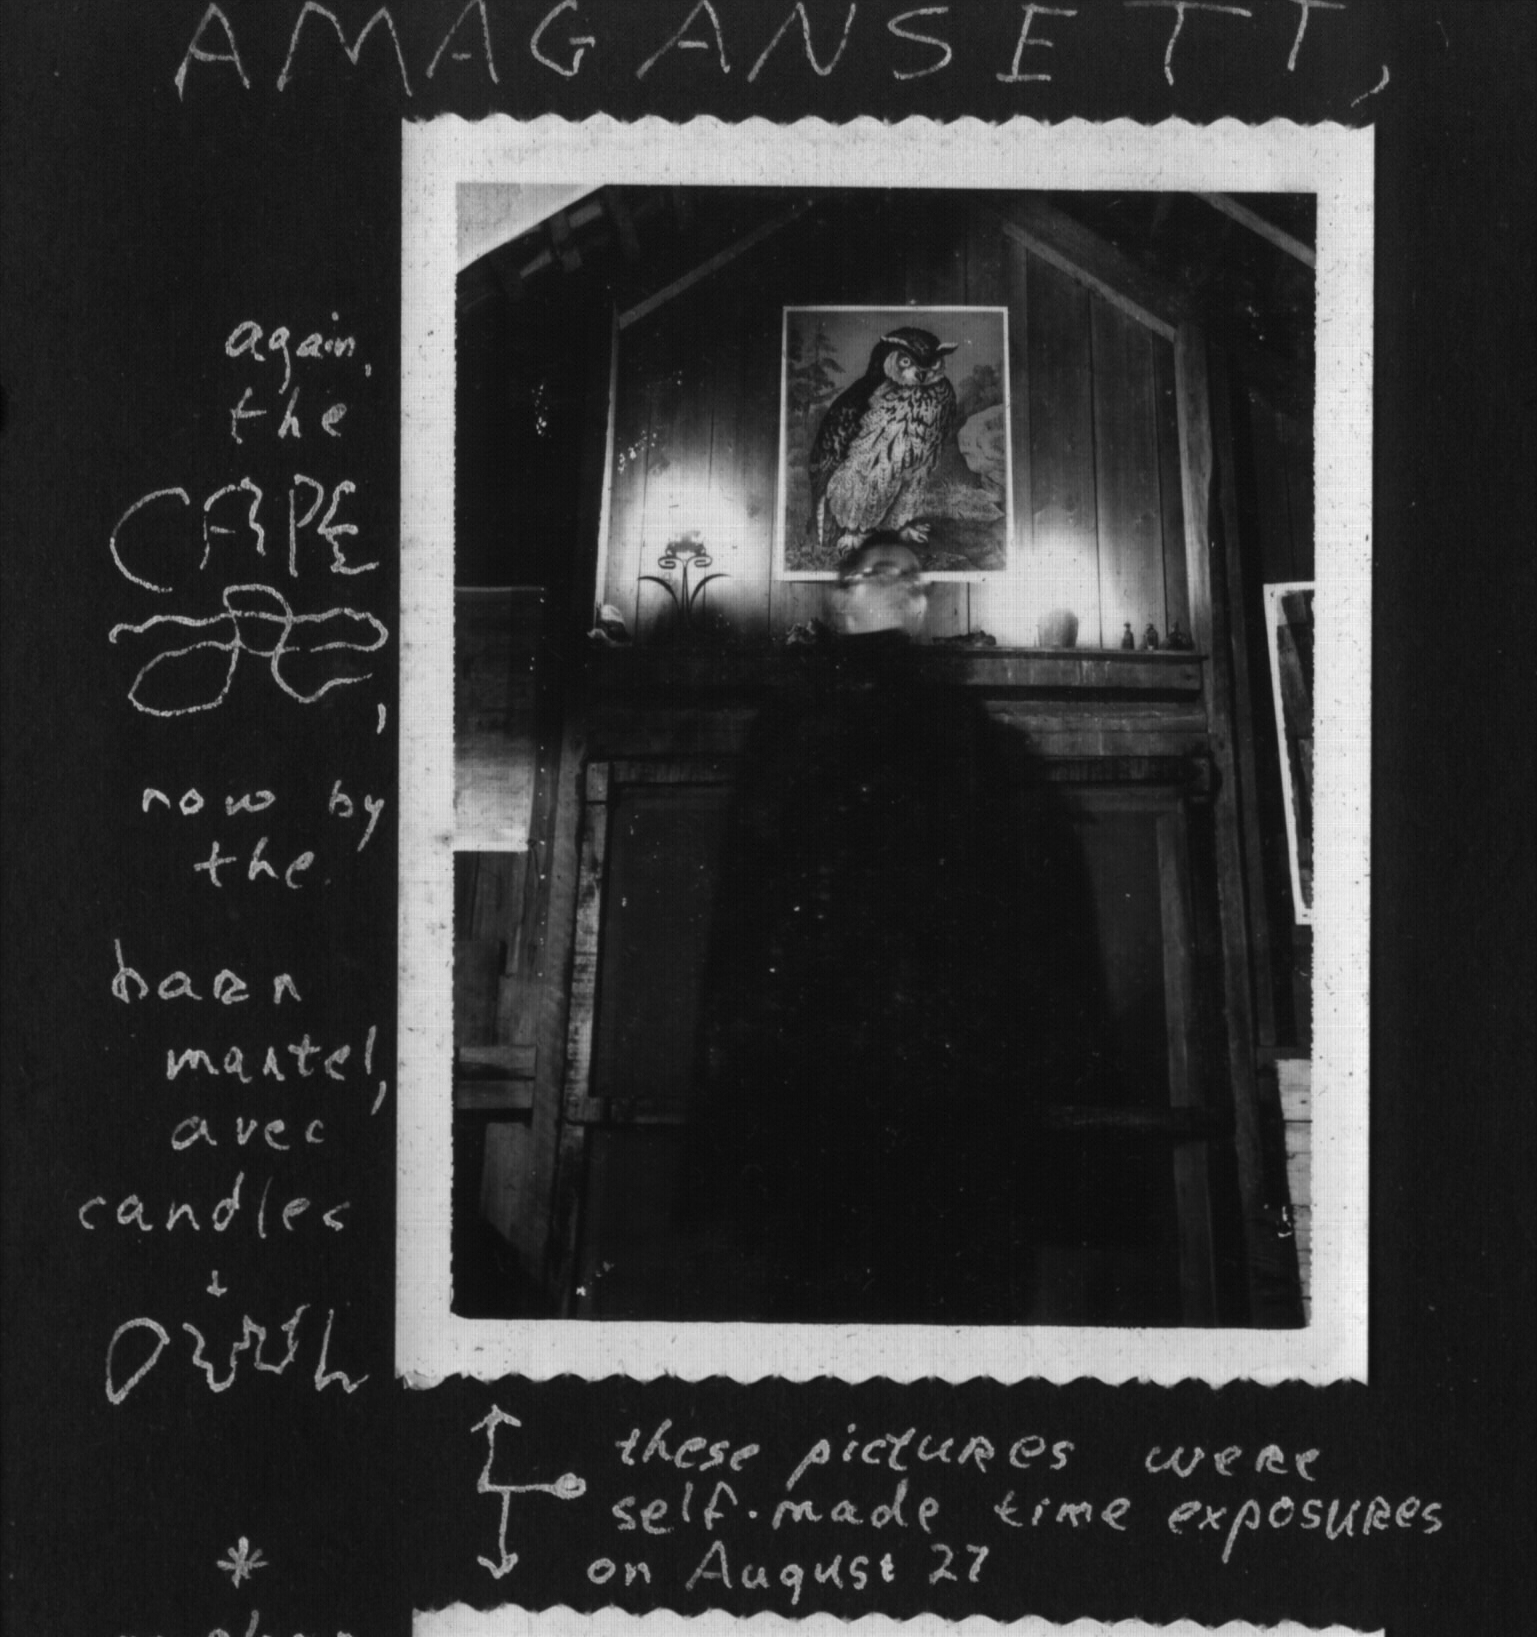 AMAGANSETT,
again,
the
CAPE
,
now by
the
barn
mantel,
avec
candles
+
OWL
these pictures were
self-made time exposures
on August 27
*